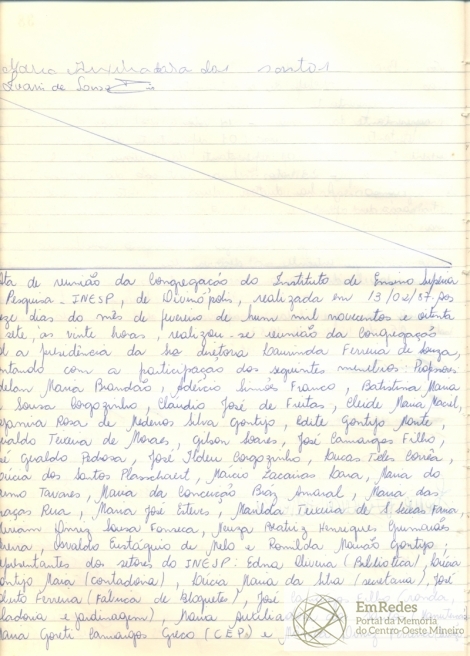 Maria Auxiliadora dos Santos
Ivani de Sousa
Ata de reunião da Congregação do Instituto de Ensino Superior
Pesquisa - INESP, de Divinópolis, realizada em 13/02/87. Aos
treze dias do mês de fevereiro de hum mil novecentos e oitenta
sete, às vinte horas, realizou-se reunião da Congregação
a presidência da Sra diretora Laurinda Ferreira de Souza,
contando com a participação dos seguintes membros: Professores
Maria Brandão, Adércio Simões Franco, Batistina Maria
Sousa Corgozinho, Claudio José de Freitas, Cleide Maria Maciel,
Rosa de Medeiros Silva Gontijo, Edite Gontijo Monte,
Geraldo Teixeira de Moraes, Gilson Soares, José Camargos Filho,
José Geraldo Pedrosa, José Ildeu Corgozinho, Lucas Teles Corrêa,
dos Santos Plasschaert, Márcio Zacarias Lara, Maria do
Carmo Tavares, Maria da Conceição Braz Amaral, Maria das
Graças Rua, Maria José Esteves, Marilda Teixeira de S. Lucas Faria,
Diniz Sousa Fonseca, Neuza Beatriz Henriques Guimarães
Osvaldo Eustáquio de Melo e Romilda Mourão Gontijo,
representantes dos setores do INESP: Edna Oliveira (Biblioteca),
Gontijo Maia (contadora), Maria da Silva (secretaria), José
Ferreira (Fabrica de Bloquetes), José Filho (ronda,
e jardinagem), Maria Auxiliadora
Goreti Camargos Greco (CEPs) e
EmRedes
Portal da Memória
do Centro-Oeste Mineiro